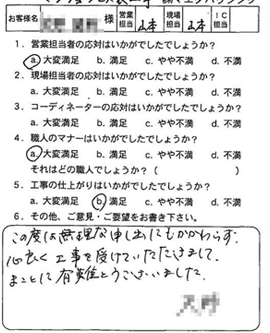 お客様名 様 営業担当 山本 現場担当 山本 IC担当
1. 営業担当者の応対はいかがでしたでしょうか?
a. 大変満足 b. 満足 c. やや不満 d. 不満
2. 現場担当者の応対はいかがでしたでしょうか?
a. 大変満足 b. 満足 c. やや不満 d. 不満
3. コーディネーターの応対はいかがでしたでしょうか?
a. 大変満足 b. 満足 c. やや不満 d. 不満
4. 職人のマナーはいかがでしたでしょうか?
a. 大変満足 b. 満足 c. やや不満 d. 不満
それはどの職人でしょうか?( )
5. 工事の仕上がりはいかがでしたでしょうか?
a. 大変満足 b. 満足 c. やや不満 d. 不満
6. その他、ご意見・ご要望をお書き下さい。
この度は無理な申し出にもかかわらず、
心良く工事を受けていただきまして
まことに有難とうございました。